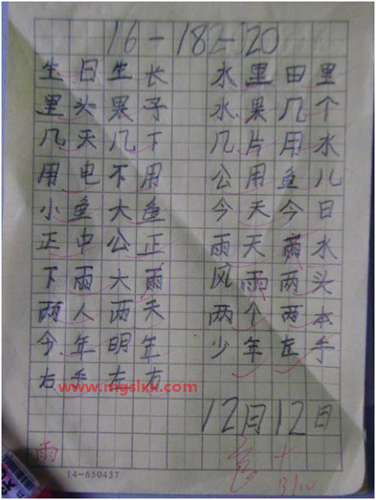 16-18 2-20
生日生长 水里田里
里头果子 水果几个
几天几下 几片用水
用电不用 公用鱼儿
小鱼大鱼 今天今日
正中公正 雨天雨水
下雨大雨 风雨两头
两人两天 两个两本
今年明年 少年左手
右手左右
www.mgslxx.com
12月12日
雨
14-650437